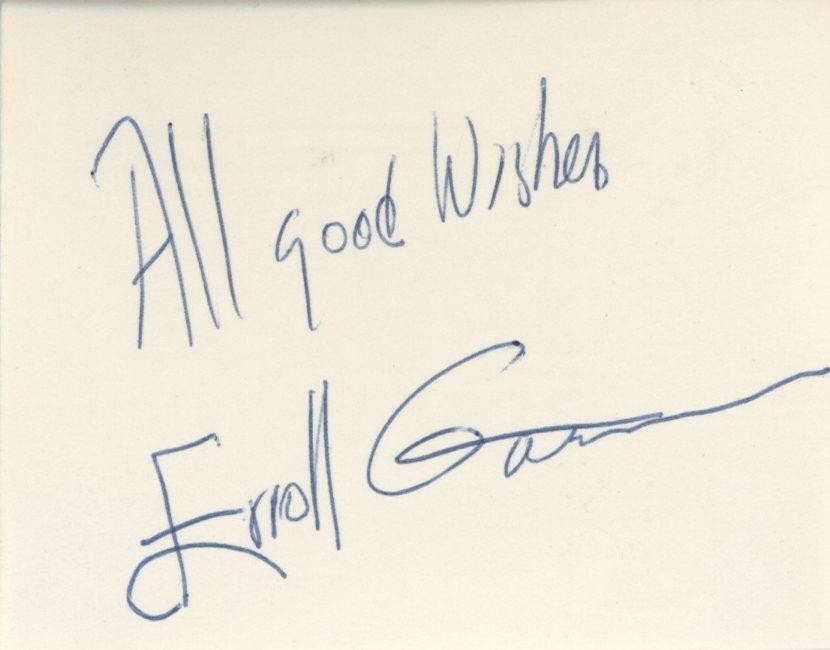 All good Wishes
Erroll Garner